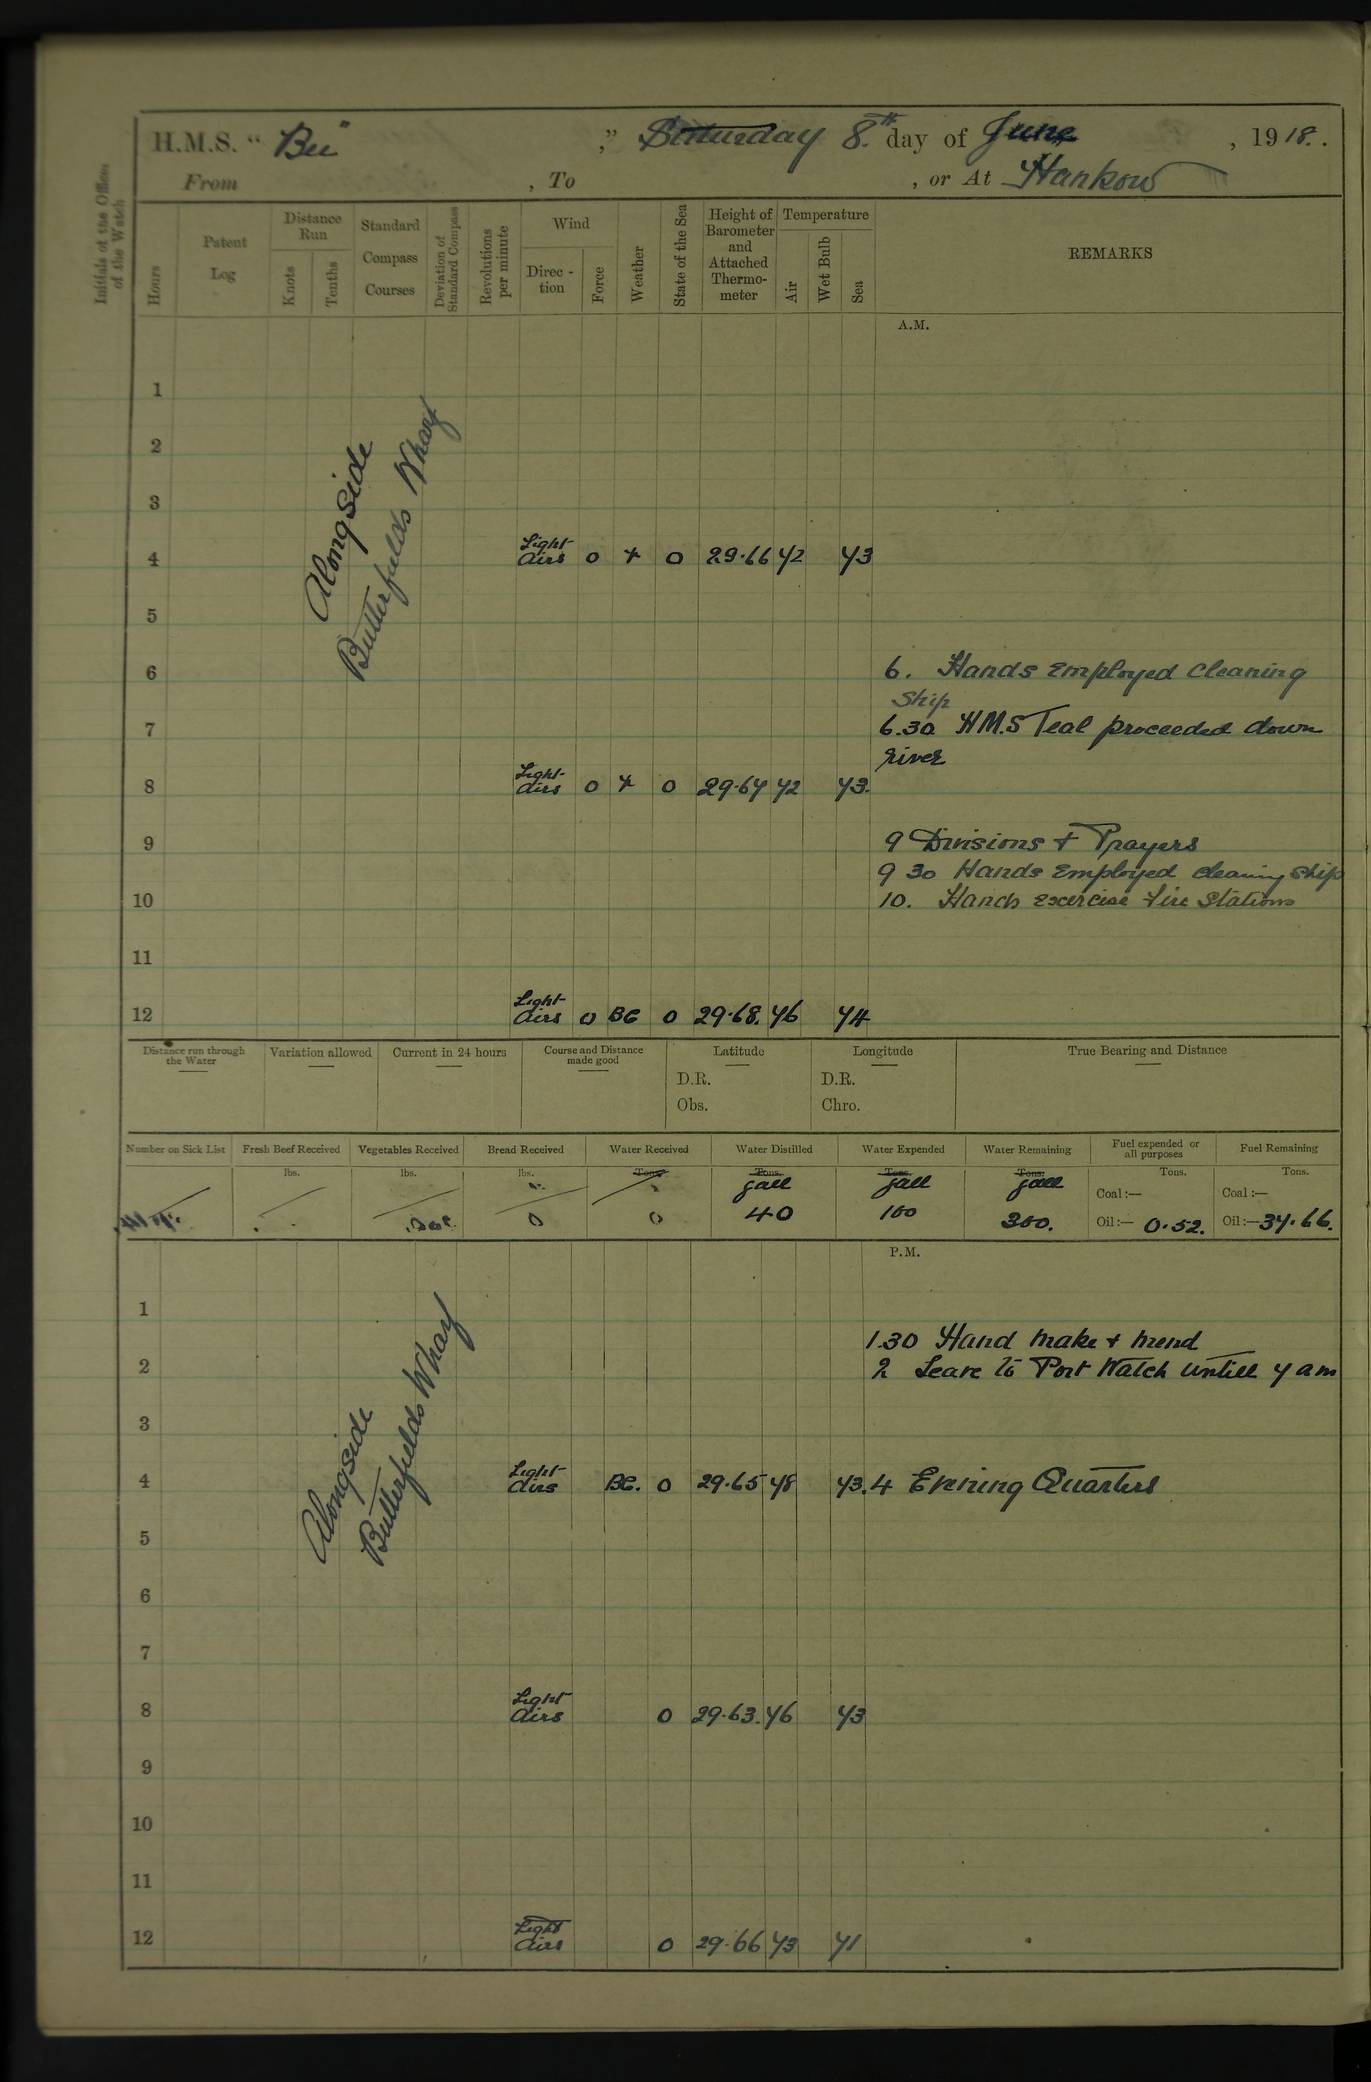 H.M.S. “ Bee ” Saturday 8th day of June , 1918.
From , To , or At Hankow
Initials of the Officer of the Watch
Hours
Patent Log
Distance Run
Knots
Tenths
Standard Compass Courses
Deviation of Standard Compass
Revolutions per minute
Wind
Direc-tion
Force
Weather
State of the Sea
Height of Barometer and Attached Thermo-meter
Temperature
Air
Wet Bulb
Sea
REMARKS
A.M.
Alongside
Butterfields Wharf
1
2
3
4 Light airs 0 + 0 29.66 72 73
5
6 6. Hands Employed Cleaning
Ship
7 6.30 HMS Teal proceeded down
river
8 Light airs 0 + 0 29.67 72 73.
9 9 Divisions + Prayers
9 30 Hands Employed cleaning ship
10 10. Hands excercise fire Stations
11
12 Light airs 0 BC 0 29.68. 76 74
Distance run through the Water
Variation allowed
Current in 24 hours
Course and Distance made good
Latitude
D.R.
Obs.
Longitude
D.R.
Chro.
True Bearing and Distance
Number on Sick List
Fresh Beef Received
lbs.
Vegetables Received
lbs.
Bread Received
lbs.
0
Water Received
Tons.
0
Water Distilled
Tons.
Gall
40
Water Expended
Tons.
Gall
100
Water Remaining
Tons.
Gall
300.
Fuel expended or all purposes
Tons.
Coal :—
Oil :— 0.52.
Fuel Remaining
Tons.
Coal :—
Oil :— 37.66.
P.M.
Alongside
Butterfields Wharf
1
1.30 Hand make + mend
2 2 Leave to Port Watch untill 7 am
3
4 Light airs BC. 0 29.65 78 73. 4 Evening Quarters
5
6
7
8 Light airs 0 29.63. 76 73
9
10
11
12 Light airs 0 29.66 73 71